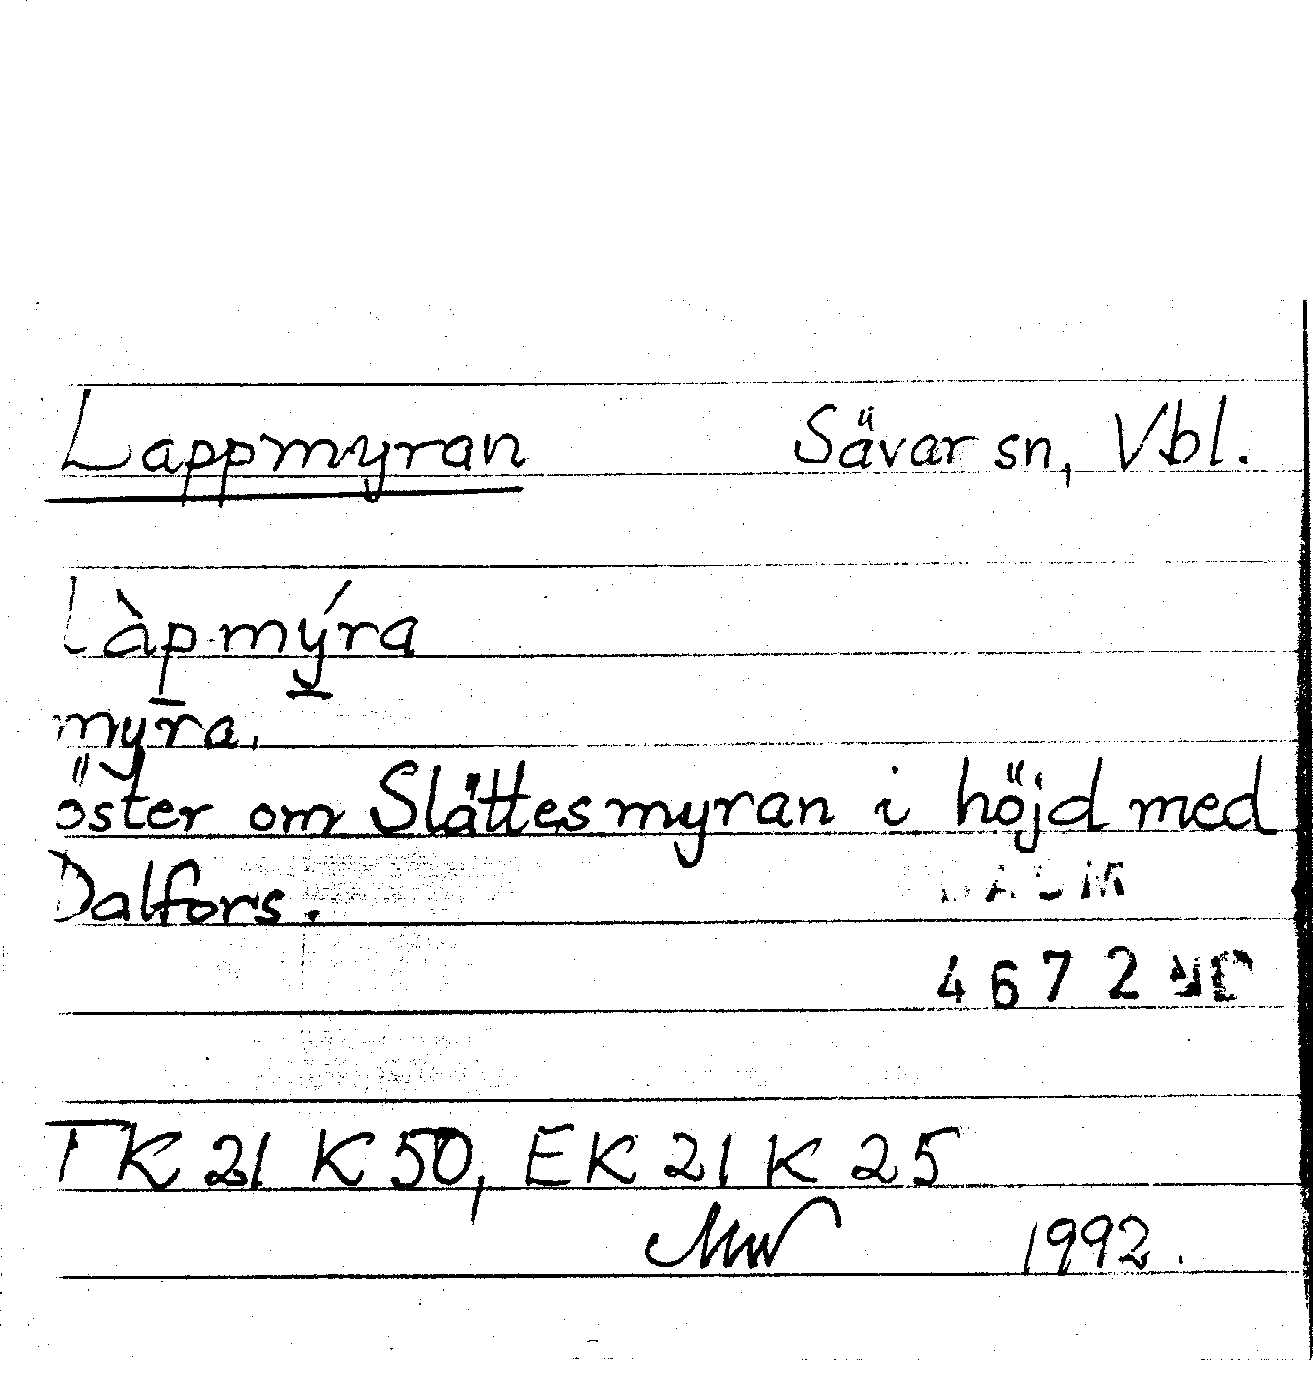 Lappmyran Sävar sn, Vbl.
Làpmýra
myra.
öster om Slåttesmyran i höjd med
Dalfors.
DAUM
4672
TK 21 K 50, EK 21 K 25
MW 1992.